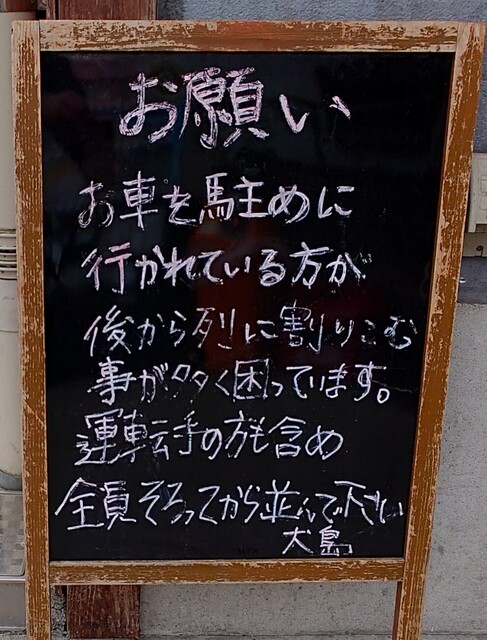 お願い
お車を駐めに
行かれている方が
後から列に割りこむ
事が多く困っています。
運転手の方も含め
全員そろってから並んで下さい
大島